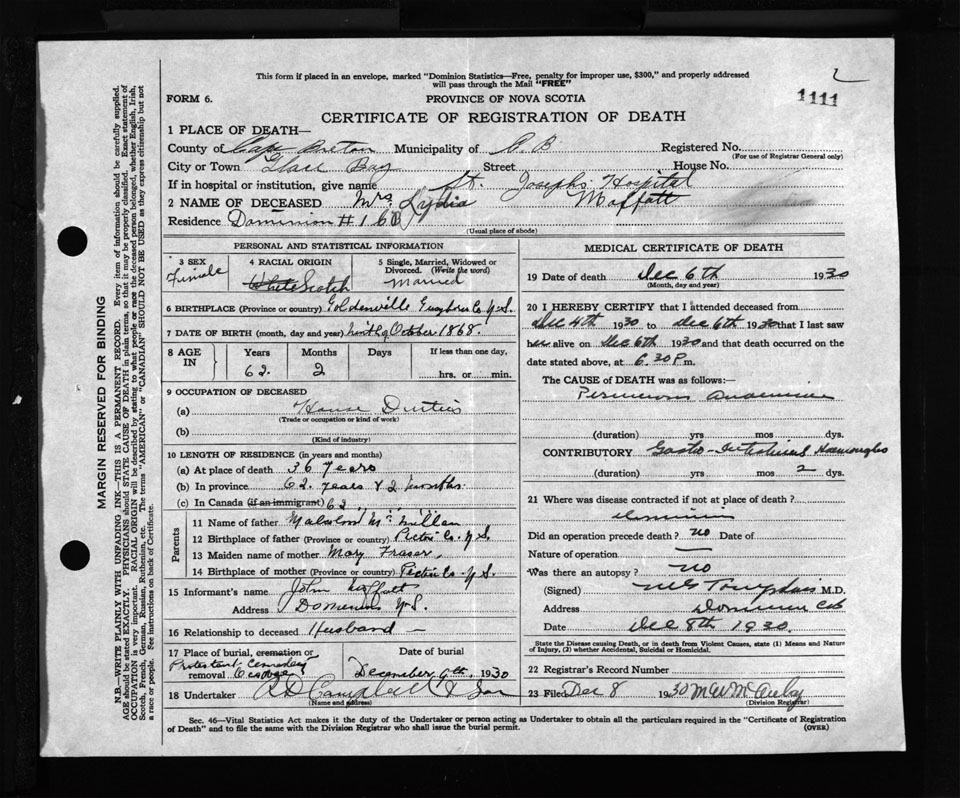 This form if placed in an envelope, marked "Dominion Statistics—Free, penalty for improper use, $300," and properly addressed
will pass through the Mail "FREE"
1111
FORM 6.
PROVINCE OF NOVA SCOTIA
CERTIFICATE OF REGISTRATION OF DEATH
1 PLACE OF DEATH—
County of Cape Breton Municipality of C. B. Registered No.
(For use of Registrar General only)
City or Town Glace Bay Street House No.
If in hospital or institution, give name St. Josephs Hospital
2 NAME OF DECEASED Mrs. Lydia Moffatt
Residence Dominion # 1 6
(Usual place of abode)
PERSONAL AND STATISTICAL INFORMATION
3 SEX Female
4 RACIAL ORIGIN White Scotch
5 Single, Married, Widowed or Divorced. (Write the word) Married
6 BIRTHPLACE (Province or country) Goldenville Guysboro Co N.S.
7 DATE OF BIRTH (month, day and year) October 1868.
8 AGE IN Years 62. Months 2 Days If less than one day, hrs. or min.
9 OCCUPATION OF DECEASED
(a) House Duties
(Trade or occupation or kind of work)
(b)
(Kind of industry)
10 LENGTH OF RESIDENCE (in years and months)
(a) At place of death 36 years
(b) In province 62. years & 2 months.
(c) In Canada (if an immigrant) 62
Parents
11 Name of father Malcolm McMillan
12 Birthplace of father (Province or country) Pictou Co. N.S.
13 Maiden name of mother Mary Fraser.
14 Birthplace of mother (Province or country) Pictou Co - N.S.
15 Informant's name John Moffatt
Address Dominion N.S.
16 Relationship to deceased Husband —
17 Place of burial, cremation or removal Protestant Cemetery
Date of burial December 9th. 1930
18 Undertaker A D Campbell & Son
(Name and address)
MEDICAL CERTIFICATE OF DEATH
19 Date of death Dec 6th 1930
(Month, day and year)
20 I HEREBY CERTIFY that I attended deceased from
Dec 4th 1930 to Dec 6th 1930 that I last saw
her alive on Dec 6th 1930 and that death occurred on the
date stated above, at 6.30 P.m.
The CAUSE of DEATH was as follows:—
Pernicious anaemia
(duration) yrs mos dys.
CONTRIBUTORY Gastro-Intestinal Haemorrhages
(duration) yrs mos 2 dys.
21 Where was disease contracted if not at place of death?
Dominion
Did an operation precede death? no Date of
Nature of operation —
Was there an autopsy? no
(Signed) M.D.
Address Dominion C.B
Date Dec 8th 1930.
State the Disease causing Death, or in death from Violent Causes, state (1) Means and Nature
of Injury, (2) whether Accidental, Suicidal or Homicidal.
22 Registrar's Record Number
23 Filed Dec 8 1930
(Division Registrar)
Sec. 46—Vital Statistics Act makes it the duty of the Undertaker or person acting as Undertaker to obtain all the particulars required in the "Certificate of Registration
of Death" and to file the same with the Division Registrar who shall issue the burial permit.
(OVER)
MARGIN RESERVED FOR BINDING
N.B.—WRITE PLAINLY WITH UNFADING INK—THIS IS A PERMANENT RECORD. Every item of information should be carefully supplied.
AGE should be stated EXACTLY. PHYSICIANS should STATE CAUSE OF DEATH in plain terms, so that it may be properly classified. Exact statement of
OCCUPATION is very important. RACIAL ORIGIN will be described by stating to what people or race the deceased person belonged, whether English, Irish,
Scotch, French, German, Russian, Ruthenian, etc. The terms "AMERICAN" or "CANADIAN" SHOULD NOT BE USED as they express citizenship but not
a race or people. See instructions on back of Certificate.